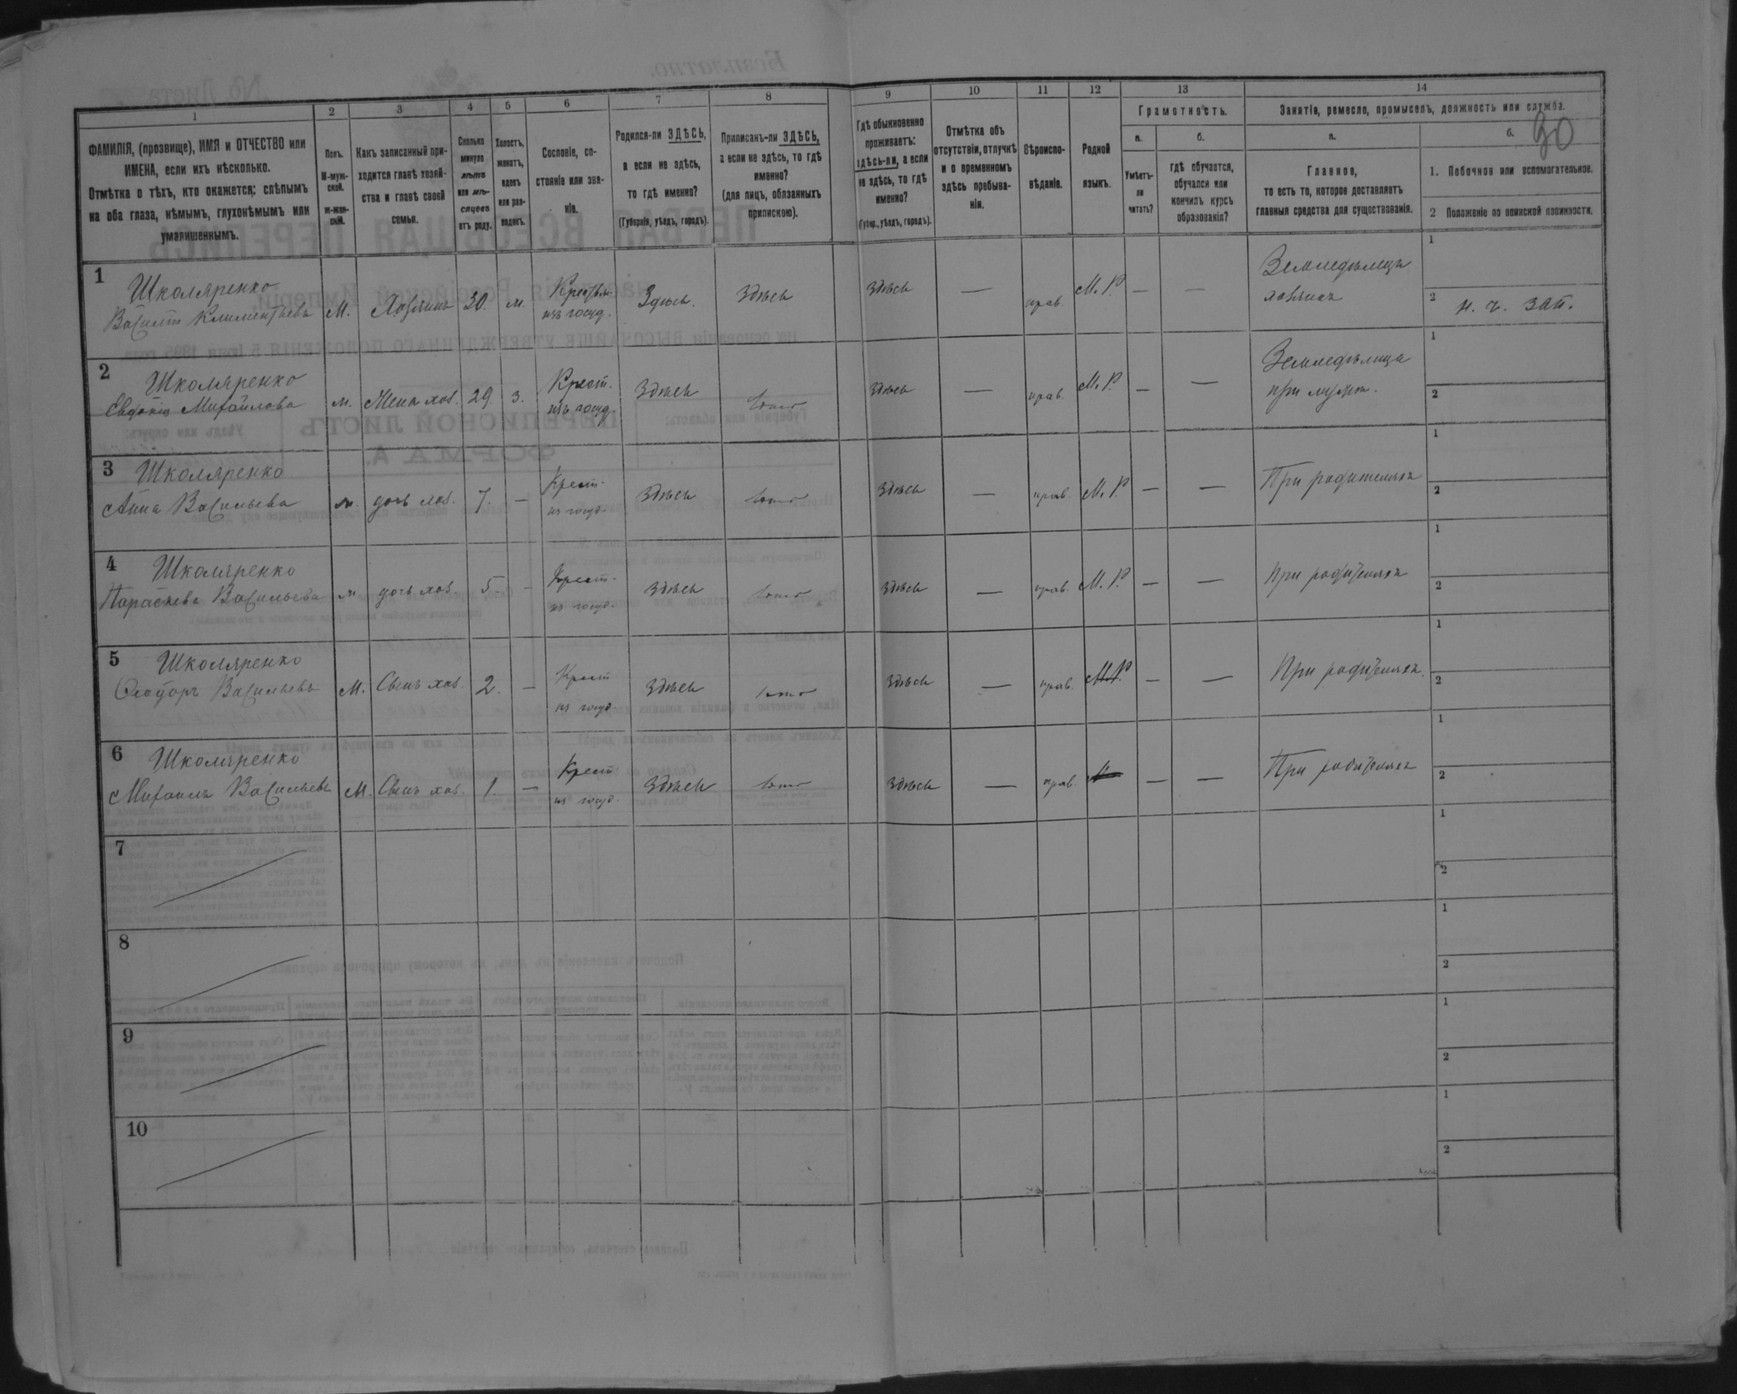 90
1 2 3 4 5 6 7 8 9 10 11 12 13 14
ФАМИЛІЯ, (прозвище), ИМЯ и ОТЧЕСТВО или
ИМЕНА, если ихъ нѣсколько.
Отмѣтка о тѣхъ, кто окажется: слѣпымъ
на оба глаза, нѣмымъ, глухонѣмымъ или
умалишеннымъ.
Полъ.
М-муж-
ской.
Ж-жен-
скій.
Какъ записанный при-
ходится главѣ хозяй-
ства и главѣ своей
семьи.
Сколько
минуло
лѣтъ
или мѣ-
сяцевъ
отъ роду.
Холостъ,
женатъ,
вдовъ
или раз-
веденъ.
Сословіе, со-
стояніе или зва-
ніе.
Родился-ли ЗДѢСЬ,
а если не здѣсь,
то гдѣ именно?
(Губернія, уѣздъ, городъ).
Приписанъ-ли ЗДѢСЬ,
а если не здѣсь, то гдѣ
именно?
(для лицъ, обязанныхъ
припискою).
Гдѣ обыкновенно
проживаетъ:
здѣсь-ли, а если
не здѣсь, то гдѣ
именно?
(Губер., уѣздъ, городъ).
Отмѣтка объ
отсутствіи, отлучкѣ
и о временномъ
здѣсь пребыва-
ніи.
Вѣроиспо-
вѣданіе.
Родной
языкъ.
Грамотность.
а.
Умѣетъ-
ли
читать?
б.
гдѣ обучается,
обучался или
кончилъ курсъ
образованія?
Занятія, ремесло, промыселъ, должность или служба.
а.
Главное,
то есть то, которое доставляетъ
главныя средства для существованія.
б.
1. Побочное или вспомогательное.
2 Положеніе по воинской повинности.
1 Школяренко
Василій Климентьевъ М. Хозяинъ 30. ж. Крестьян. изъ госуд. Здѣсь. Здѣсь Здѣсь — прав. М. Р. — — Земледѣлецъ хозяинъ
1
2 н. ч. зап.
2 Школяренко
Евдокія Михайлова ж. Жена хоз. 29 з. Крест. изъ госуд. Здѣсь тоже Здѣсь — прав. М. Р — — Земледѣлица при мужѣ.
1
2
3 Школяренко
Анна Васильева ж. дочь хоз. 7. — Крест. из госуд. Здѣсь тоже Здѣсь — прав. М. Р — — При родителяхъ
1
2
4 Школяренко
Параскева Васильева ж дочь хоз. 5 — Крест. из госуд. Здѣсь тоже Здѣсь — прав. М. Р — — При родителяхъ
1
2
5 Школяренко
Ѳеодоръ Васильевъ М. Сынъ хоз. 2. — Крест из госуд Здѣсь тоже Здѣсь — прав. М. Р. — — При родителяхъ
1
2
6 Школяренко
Михаилъ Васильевъ М. Сынъ хоз. 1. — Крест из госуд. Здѣсь тоже Здѣсь — прав. — — При родителяхъ
1
2
7
1
2
8
1
2
9
1
2
10
1
2